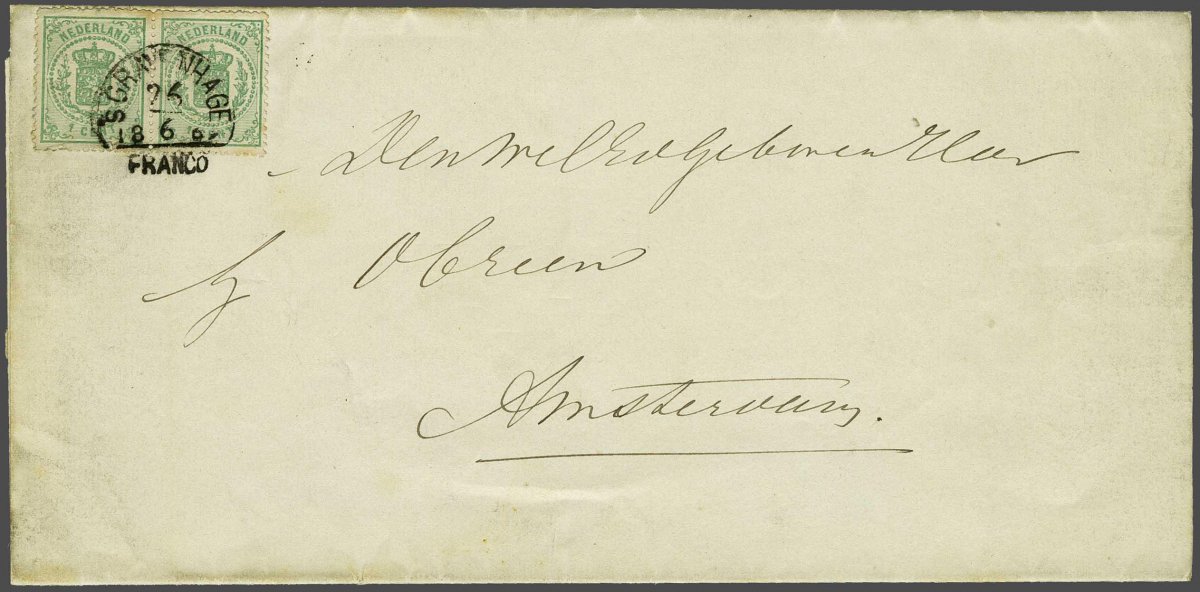 NEDERLAND NEDERLAND
1 C
'S GRAVENHAGE
26
18 6 6
FRANCO
Den Wel Ed Geboren Heer
Amsterdam.